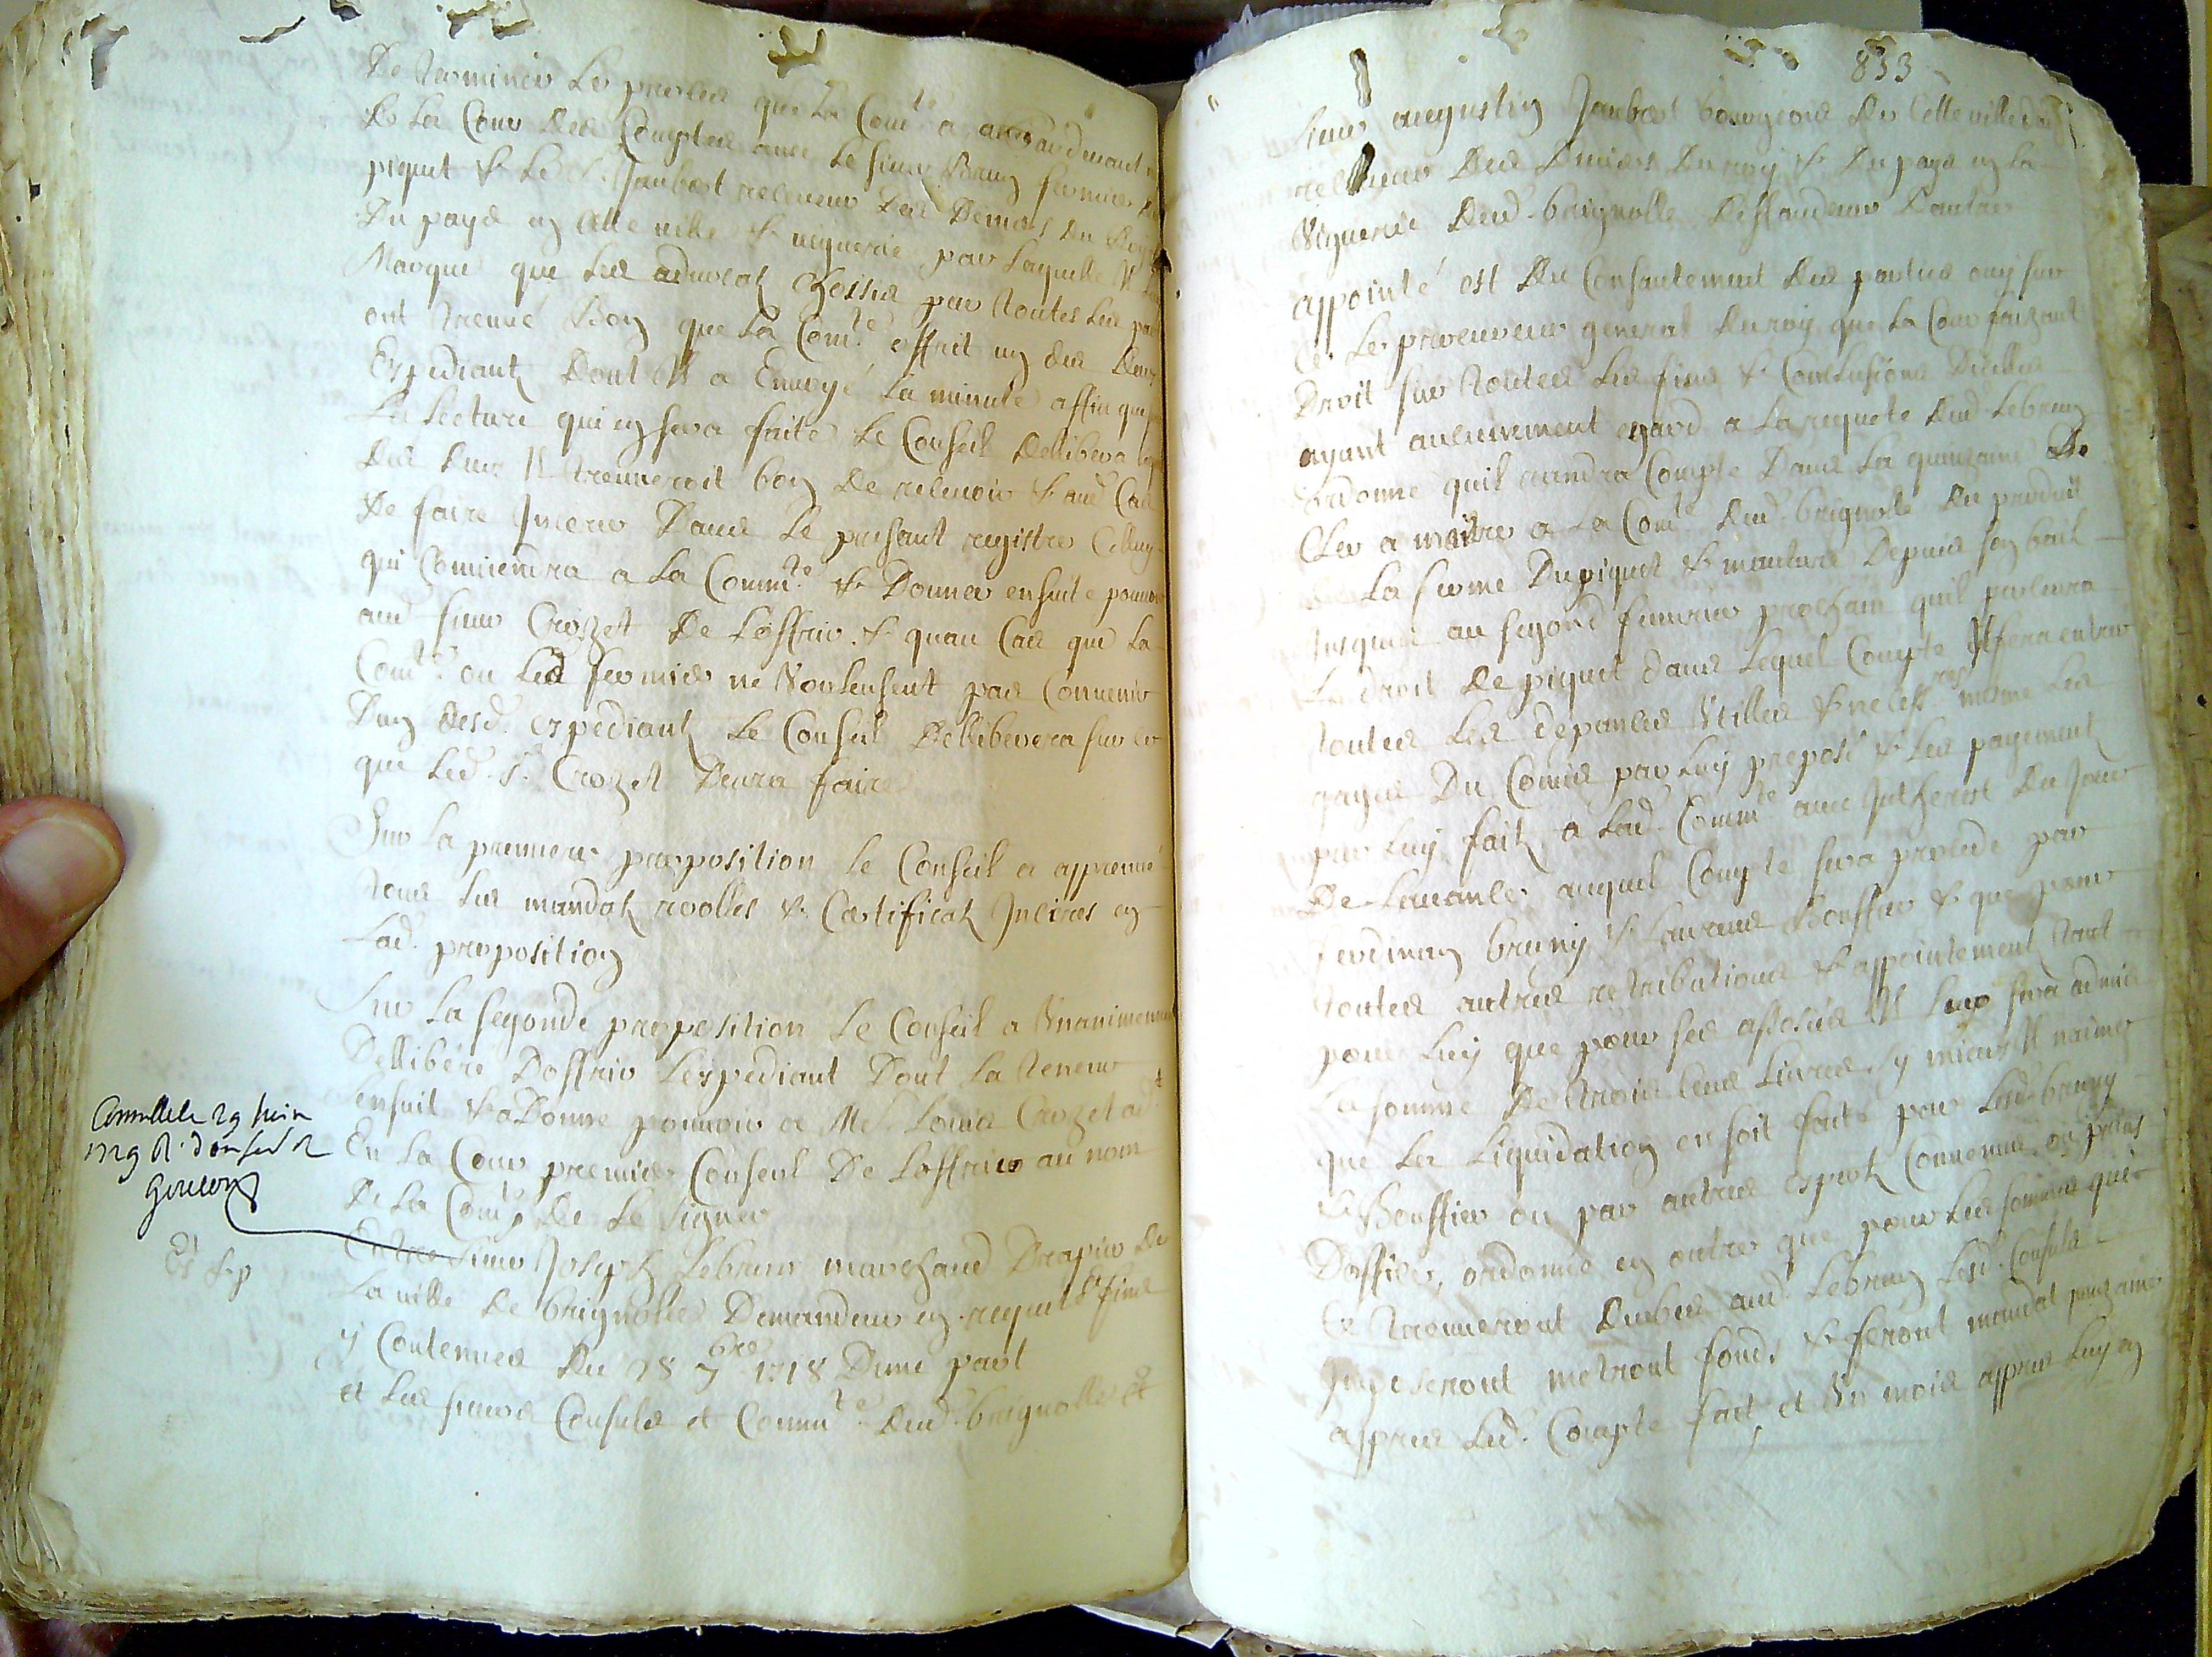 De terminer les proces que la Com.te a
de la Cour des Comptes avec le sieur Brun fermier du
piquet & le s. Jaubert receveur des deniers du Roy
du pays en cette ville & viguerie par laquelle Il
Marque que les advocatz choisis par toutes les
ont treuvé Bon que la Com.te offrit un des deux
Expediantz dont Il a Envoyé la minute affin que
La lecture qui en sera faite le Conseil dellibera
des deux Il treuveroit bon de relevoir & aud. Cas
De faire Jncerer dans le presant registre Celluy
qui Conviendra a la Comm.te & Donner ensuite pouvoir
aud sieur Crozet De Loffrir. & quau Cas que la
Com.te ou led fermier ne Voulussent pas Convenir
Dun desd. expediantz le Conseil dellibevera sur ce
que led. s.r Crozet Devra faire
Sur la premiere propposition le Conseil a approuvé
tous les mandatz roolles & Certificatz Jncires en
lad. proposition
Sur La segonde propposition le Conseil a Vnanimement
Dellibéré Doffrir Lexpediant Dont la teneur
ensuit & a Donne pouvoir a Me Louis Crozet ad.t
En la Cour premier Consul De Loffrir au nom
De la Com.te & De Le signer
29 Juin
1729
Entre sieur Joseph Lebrun marchand Drapier de
La ville de brignolle Demandeur en requete & fins
y Contenues du 28 7bre 1718 Dune part
et les sieurs Consuls et Comm.te dud. brignolle et
833
sieur augustin Jaubert bourgeois de cette ville
receveur des deniers du roy & du pays en la
Viguerie dud. brignolle deffandeur dautre
appointé est du Consantement des parties ouy sur
ce le procureur general du roy que la Cour faizant
Droit sur toutes les fins & Conclusions dicelles
ayant aucunement egard a la requete dud Lebrun
ordonne quil randra Compte dans la quinzaine de
Cler a maitre a la Com.te dud. brignole du produit
de La ferme du piquet & mouture depuis son bail
Jusques au segond fevrier prochain quil percevra
Le droit de piquet dans lequel Compte Il fera entrer
toutes les depances Vtilles & necess.res même les
gages Du Comis par luy preposé & les payementz
par luy faitz a lad. Comm.te avec Jntherest du Jour
De Lavance auquel Compte sera procede par
ferdinan bruny & Laurans Bouffier & que pour
toutes autres retributions & appointement tant
pour luy que pour ses assosiés Il leur sera admis
La somme de trois cens livres sy mieux Il naime
que la Liquidation en soit faite par lesd. bruny
& Bouffier ou par autres expertz Convenus ou prins
Doffice, ordonne en outre que pour les sommes qui
se treuveront deubes aud. Lebrun lesd. Consuls
Jmposeront metront fonds & feront mandat quinzaine
appres led. Compte fait, et Un mois appres luy en